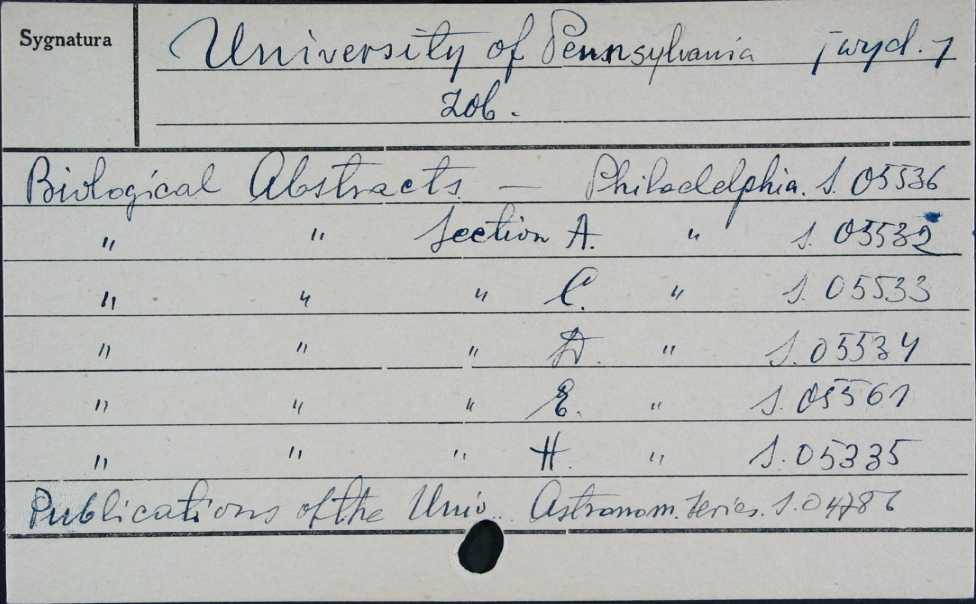 Sygnatura
University of Pennsylvania [wyd.]
zob.
Biological Abstracts — Philadelphia. S. 05536
" " Section A. " S. 05532
" " " C. " S. 05533
" " " D. " S. 05534
" " " E. " S. 05561
" " " H. " S. 05335
Publications of the Univ.. Astronom. Series. S. 04786